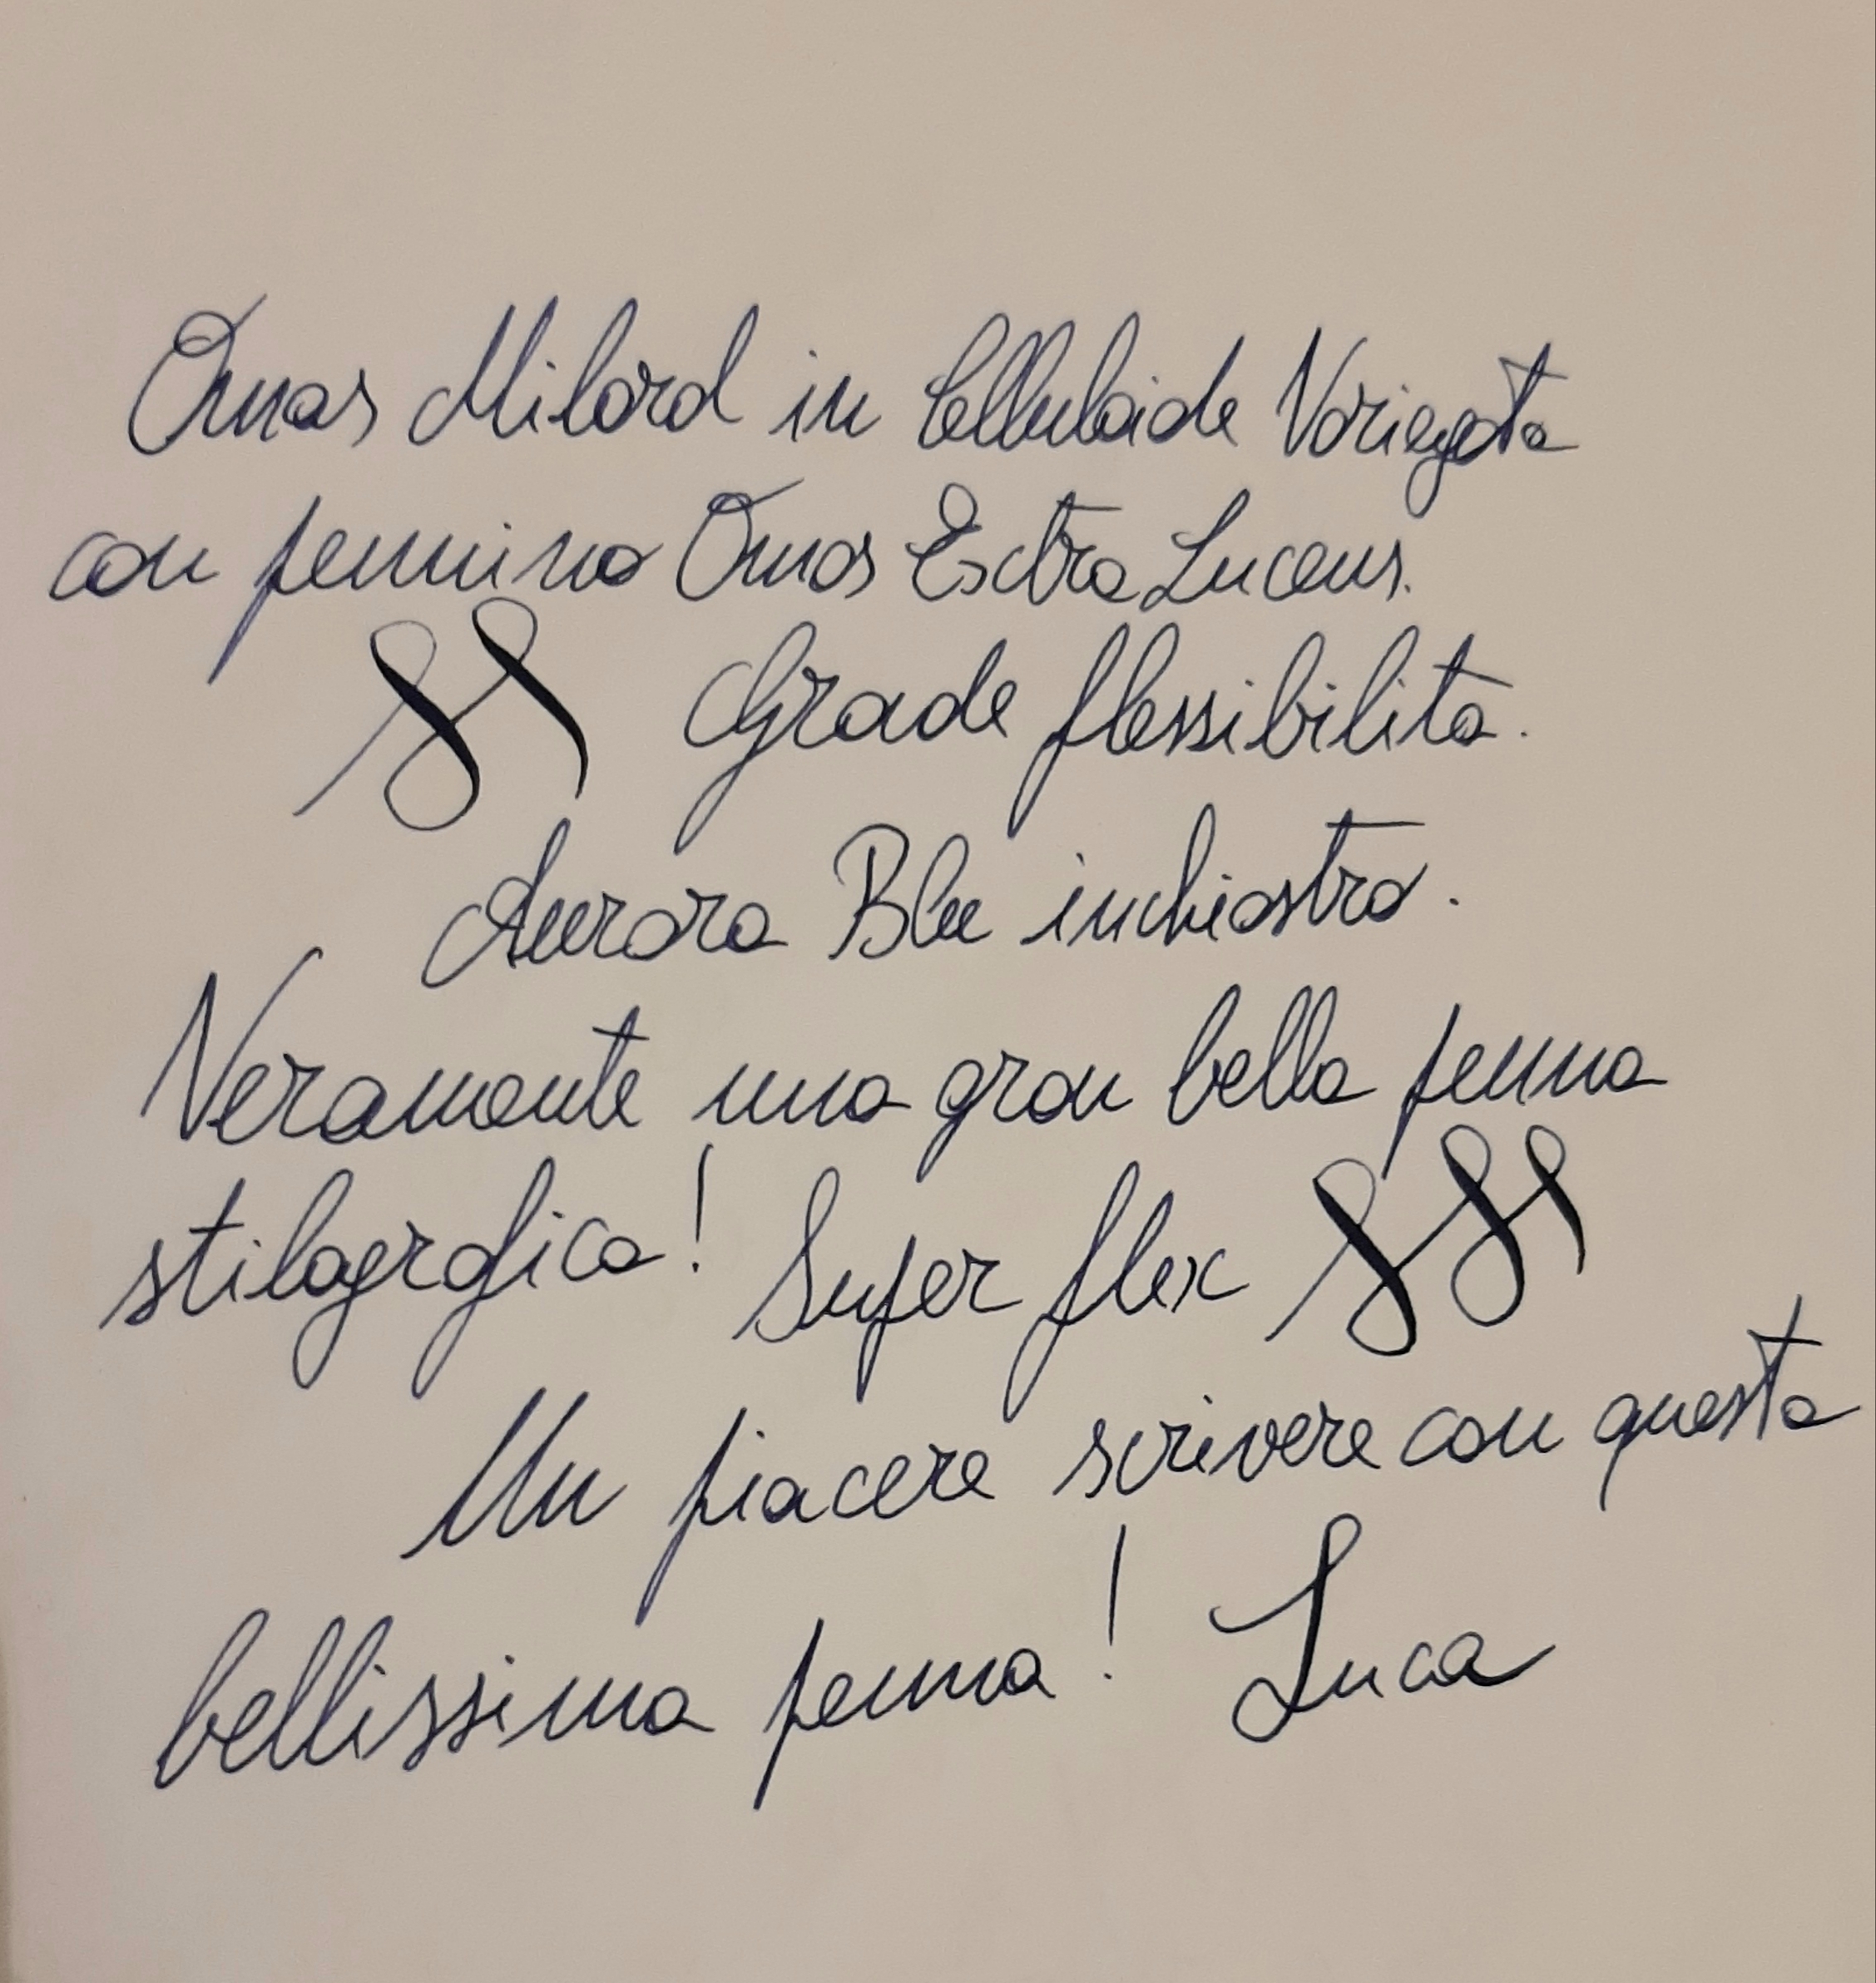 Omas Milord in Celluloide Variegata
con pennino Omas Extra Lucens.
Grade flessibilita.
Aurora Blu inchiostro.
Veramente una gran bella penna
stilografica! Super flex
Un piacere scrivere con questa
bellissima penna! Luca